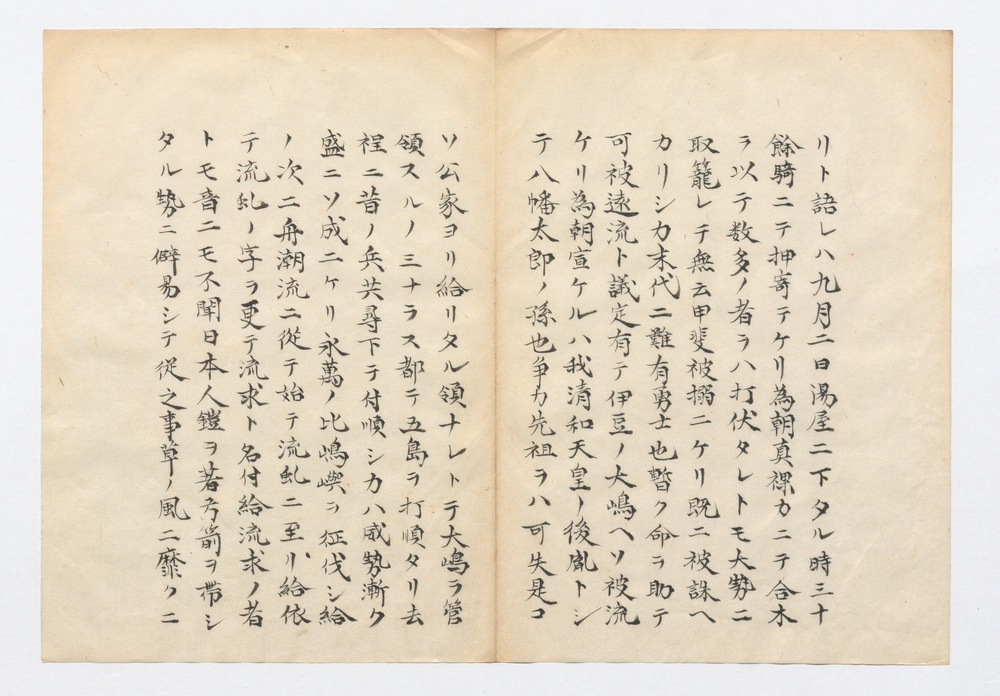 リト語レハ九月二日湯屋ニ下タル時三十
餘騎ニテ押寄テケリ為朝真裸カニテ合木
ヲ以テ数多ノ者ヲハ打伏タレトモ大勢ニ
取籠レテ無云甲斐被搦ニケリ既ニ被誅ヘ
カリシカ末代ニ難有勇士也暫ク命ヲ助テ
可被遠流ト議定有テ伊豆ノ大嶋ヘソ被流
ケリ為朝宣ケルハ我清和天皇ノ後胤トシ
テ八幡太郎ノ孫也争カ先祖ヲハ可失是コ
ソ公家ヨリ給リタル領ナレトテ大嶋ヲ管
領スルノミナラス都テ五島ヲ打順タリ去
程ニ昔ノ兵共尋下テ付順シカハ威勢漸ク
盛ニソ成ニケリ永萬ノ比嶋嶼ヲ征伐シ給
ノ次ニ舟潮流ニ從テ始テ流虬ニ至リ給依
テ流虬ノ字ヲ更テ流求ト名付給流求ノ者
トモ音ニモ不聞日本人鎧ヲ著弓箭ヲ帯シ
タル勢ニ僻易シテ從之事草ノ風ニ靡クニ